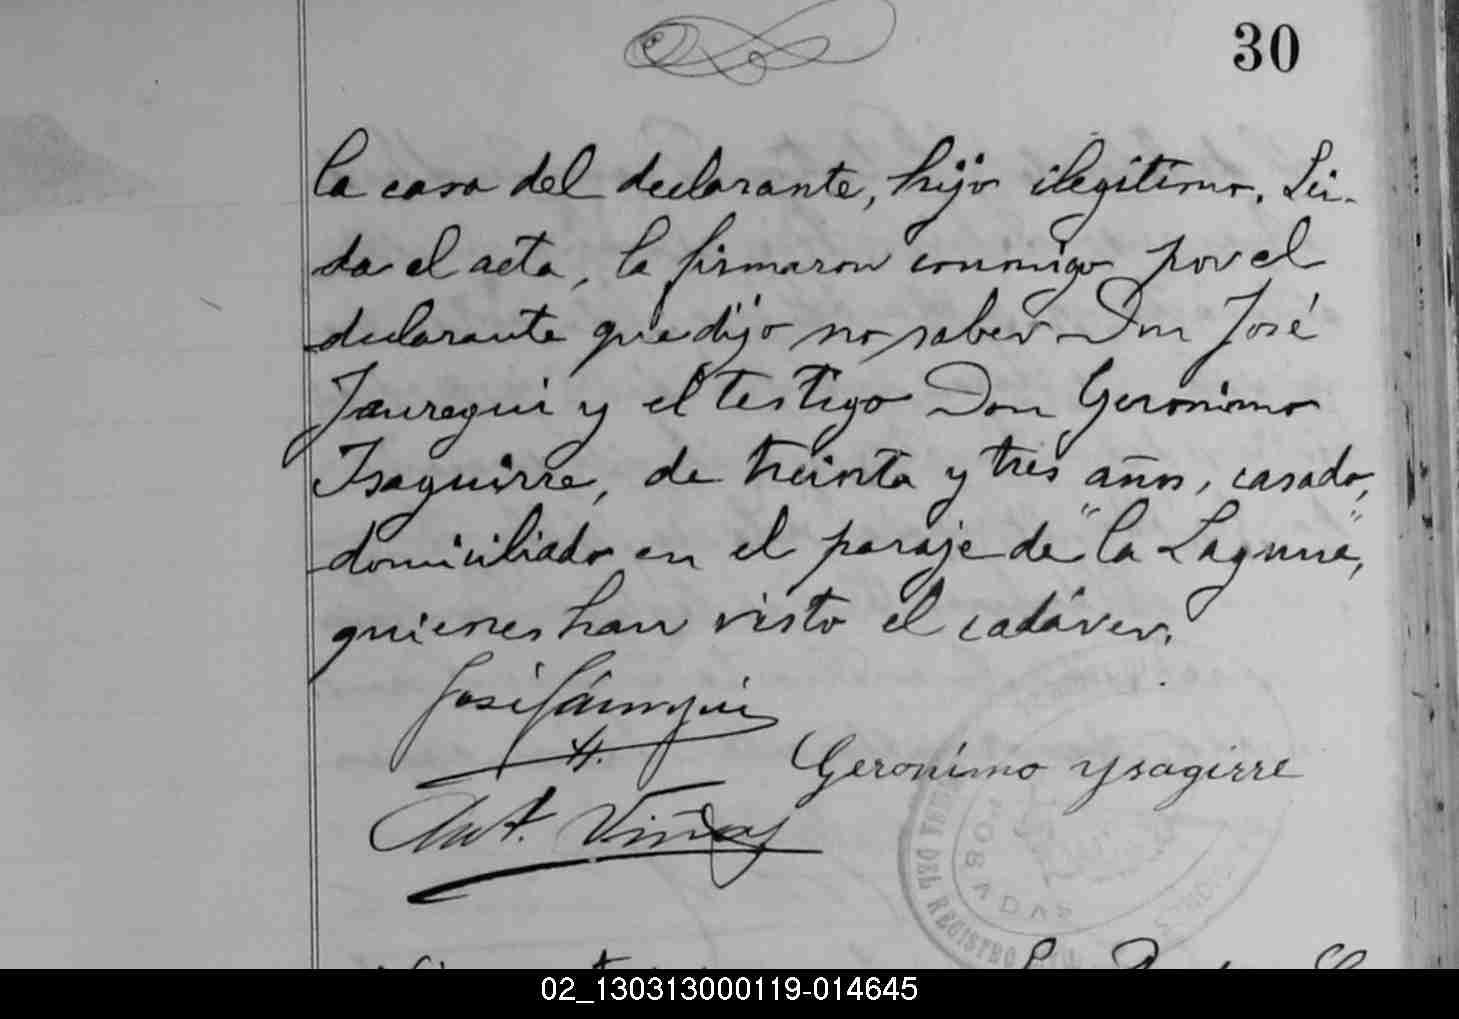 30
la casa del declarante, hijo ilegitimo. Lei-
da el acta, la firmaron conmigo por el
declarante que dijo no saber Don José
Jauregui y el testigo Don Geronimo
Isaguirre, de treinta y tres años, casado,
domiciliado en el paraje de "la Laguna",
quienes han visto el cadáver.
José Jáuregui
Geronimo Ysagirre
Ant. Viñas
DEL REGISTRO
POSADAS
02_130313000119-014645